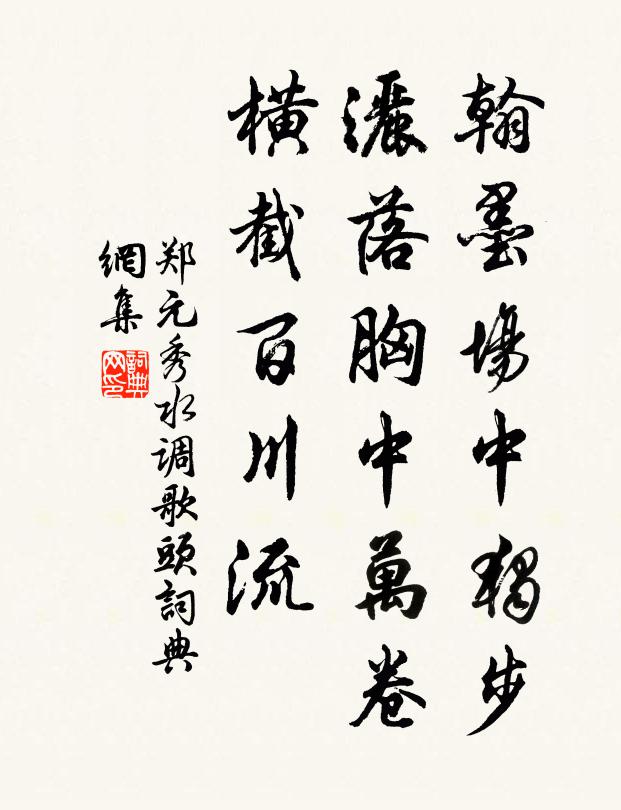 翰墨場中獨步
灑落胸中萬卷
橫截百川流
郑元秀水调歌頭詞典
網集
詞典
网印